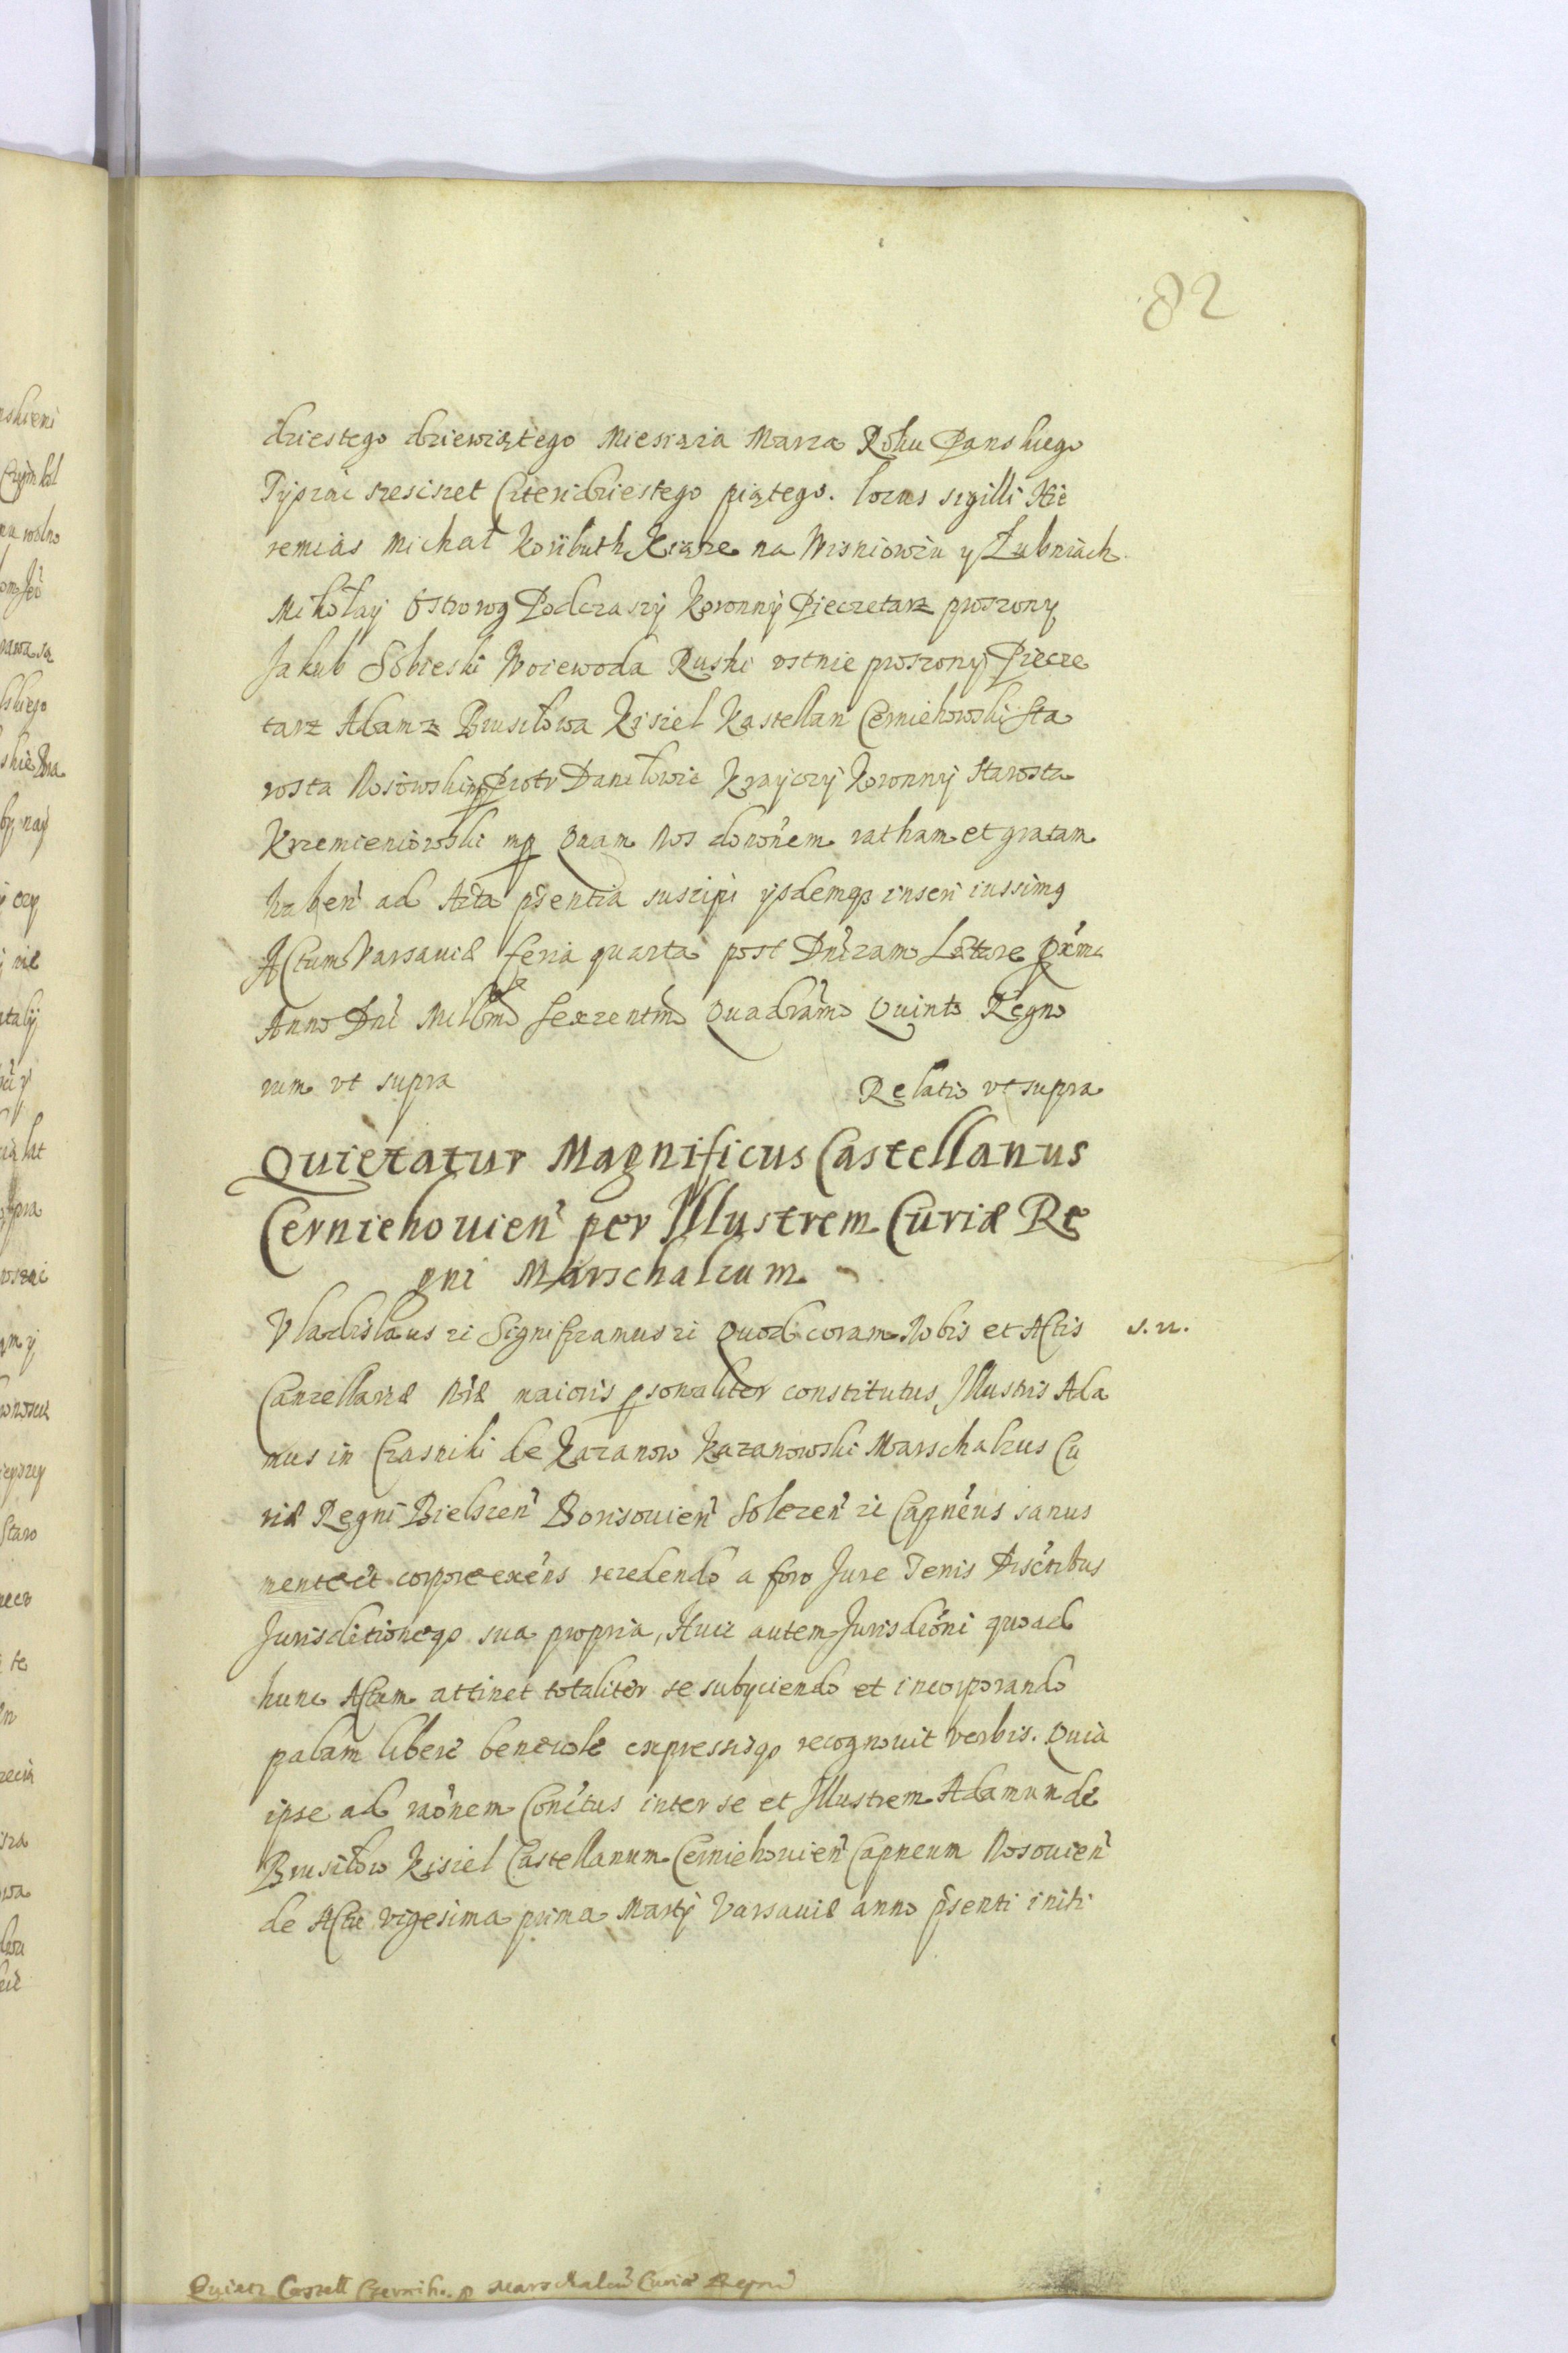 82
dziestego dziewiątego Miesiąca Marca Roku Panskiego
Tysiąc szescset Czteridziestego piątego. locus sigilli Hie
remias Michał Koributh Xiąze na Wisniowcu y Łubniach
Mikołay Ostrorog Podczaszy Koronny Pieczetarz proszony
Jakub Sobieski Woiewoda Ruski ustnie proszony Piecze
tarz Adam z Brusiłowa Kisiel Kastellan Czerniehowski Sta
rosta Nosowski mp Piotr Daniłowic Krayczy Koronny Starosta
Krzemieniecowski mp Quam Nos donõnem ratham et gratam
haben̄ ad Acta p̃sentia suscipi ysdemq3 inseri iussimq
Actum Varsaviæ feria quarta post Dnĩcam Lætare Px̃ma
Anno Dnĩ Millmõ Sexcentmõ Quadrãmo Quinto Regno
rum vt supra
Relatio vt supra
Quietatur Magnificus Castellanus
Cerniehouien̄ per Illustrem Curiæ Re
gni Marschalcum
Vladislaus ec Significamus ec Quod coram Nobis et Actis
s. n.
Cancellariæ Nr̃æ maioris psonaliter constitutus, Illustris Ada
mus in Crasniki de Kazanow Kazanowski Marschalcus Cu
riæ Regni Bielscen̄ Borisouien̄ Solecen̄ ec Capnẽus sanus
mente et corpore exẽns recedendo a foro Jure Terris Disẽtibus
Jurisditioneq3 sua propria, Huic autem Jurisdiõni quoad
hunc Actum attinet totaliter se subyciendo et incorporando
palam libere benevole expressisq3 recognovit verbis. Quia
ipse ad raõnem Conĩctus inter se et Illustrem Adamum de
Brusiłow Kisiel Castellanum Cerniehouien̄ Capneum Nosouien̄
de Actu vigesima prima Martij Varsauiæ anno p̃senti initi
Quiet. Castell Czernih. p Marschalcũ Curiæ Regni